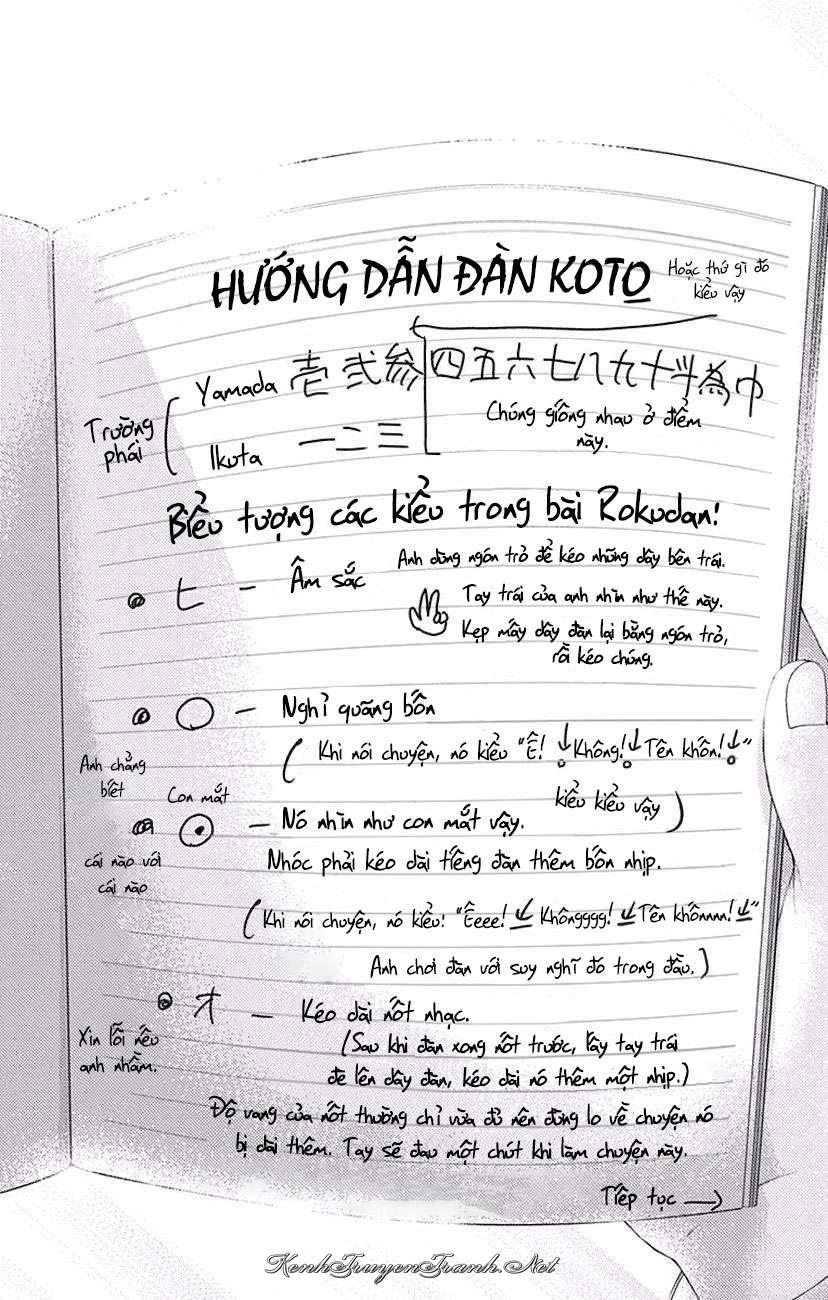 HƯỚNG DẪN ĐÀN KOTO
Hoặc thứ gì đó
kiểu vậy
Trường
phái
Yamada 壱 弐 参 四 五 六 七 八 九 十 斗 為 巾
Chúng giống nhau ở điểm
này.
Ikuta 一 二 三
Biểu tượng các kiểu trong bài Rokudan!
ヒ – Âm sắc
Anh dùng ngón trỏ để kéo những dây bên trái.
Tay trái của anh nhìn như thế này.
Kẹp mấy dây đàn lại bằng ngón trỏ,
rồi kéo chúng.
○ – Nghỉ quãng bốn
( Khi nói chuyện, nó kiểu "Ê! ↓ Không! ↓ Tên khốn! ↓"
kiểu kiểu vậy )
Anh chẳng
biết
cái nào với
cái nào
Con mắt
– Nó nhìn như con mắt vậy.
Nhóc phải kéo dài tiếng đàn thêm bốn nhịp.
(Khi nói chuyện, nó kiểu! "Êeee! ↓ Khôngggg! ↓ Tên khốnnnn! ↓"
Anh chơi đàn với suy nghĩ đó trong đầu.)
オ – Kéo dài nốt nhạc.
(Sau khi đàn xong nốt trước, lấy tay trái
đè lên dây đàn, kéo dài nó thêm một nhịp.)
Xin lỗi nếu
anh nhầm.
Độ vang của nốt thường chỉ vừa đủ nên đừng lo về chuyện nó
bị dài thêm. Tay sẽ đau một chút khi làm chuyện này.
Tiếp tục →
KenhTruyenTranh.Net